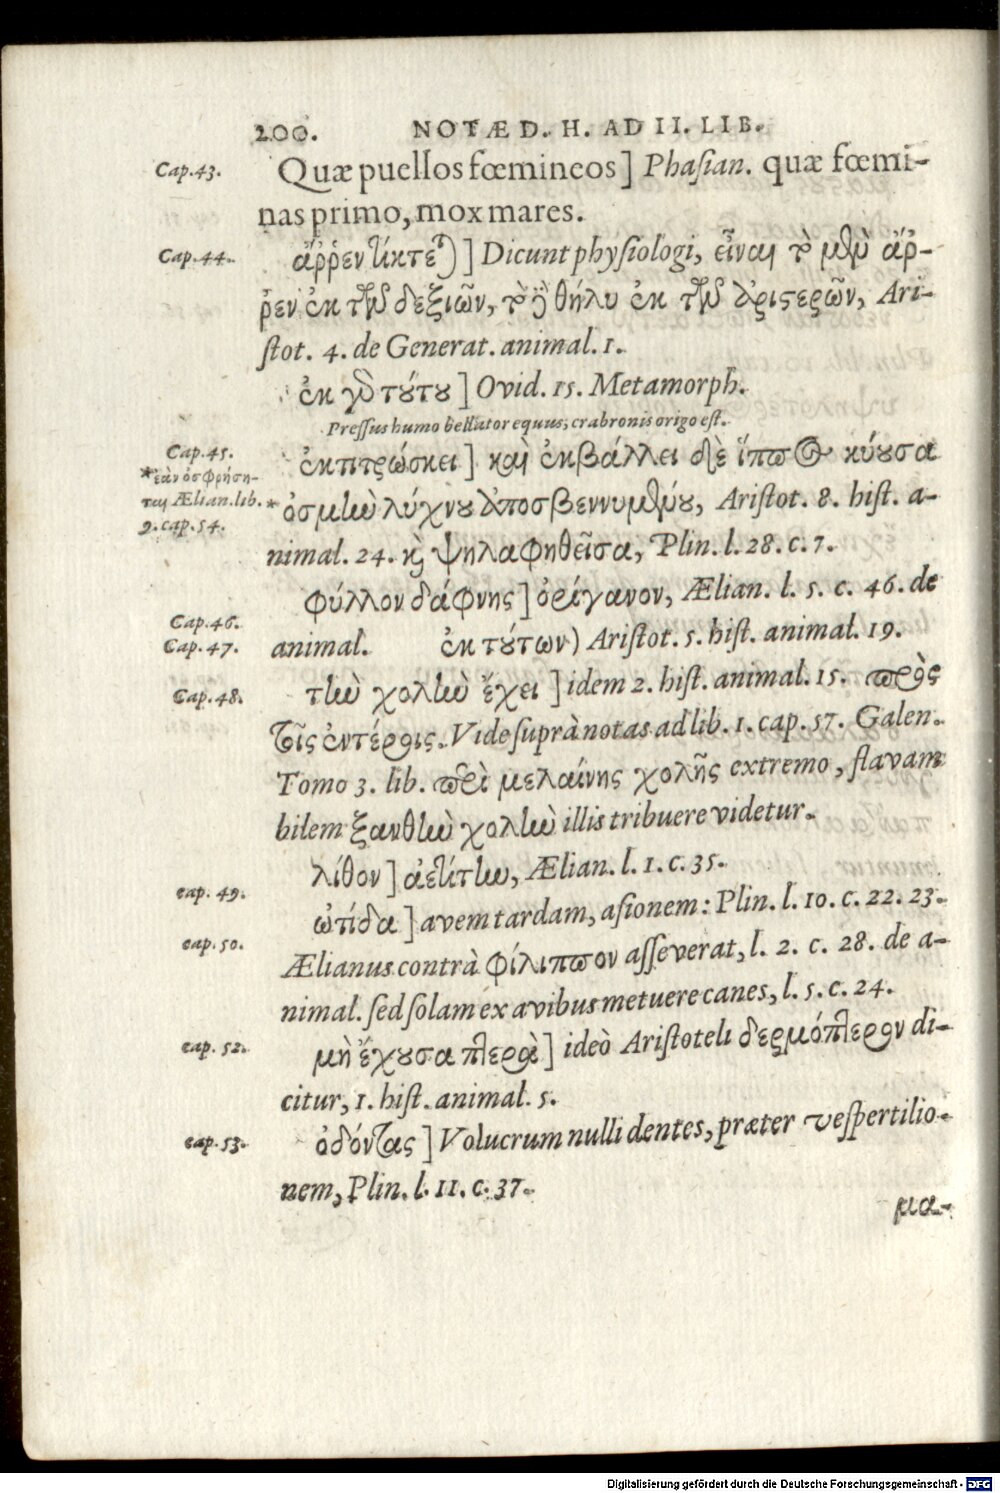 200. NOTÆ D. H. AD II. LIB.
Cap. 43. Quæ puellos fœmineos] Phaſian. quæ fœmi-
nas primo, mox mares.
Cap. 44. ἄῤῥεν τίκτεται] Dicunt phyſiologi, εἶναι τὸ μὲν ἄῤ-
ῥεν ἐκ τῶν δεξιῶν, τὸ δὲ θῆλυ ἐκ τῶν ἀριστερῶν, Ari-
ſtot. 4. de Generat. animal. 1.
ἐκ γὸ τούτου] Ovid. 15. Metamorph.
Preſſus humo bellator equus, crabronis origo eſt.
Cap. 45. ἐκτιτρώσκει] καὶ ἐκβάλλει δὲ ἵππος κύουσα
* ἐὰν ὀσφρήση-
ται Ælian. lib.
9. cap. 54.
* ὀσμὴν λύχνου ἀποσβεννυμένου, Ariſtot. 8. hiſt. a-
nimal. 24. καὶ ψηλαφηθεῖσα, Plin. l. 28. c. 7.
Cap. 46. φύλλον δάφνης] ὀρίγανον, Ælian. l. 5. c. 46. de
Cap. 47. animal. ἐκ τούτων) Ariſtot. 5. hiſt. animal. 19.
Cap. 48. τὴν χολὴν ἔχει] idem 2. hiſt. animal. 15. πρὸς
τοῖς ἐντέροις. Vide ſuprà notas ad lib. 1. cap. 57. Galen.
Tomo 3. lib. περὶ μελαίνης χολῆς extremo, flavam
bilem ξανθὴν χολὴν illis tribuere videtur.
λίθον] ἀετίτην, Ælian. l. 1. c. 35.
cap. 49. ὠτίδα] avem tardam, aſionem: Plin. l. 10. c. 22. 23.
cap. 50. Ælianus contrà φίλιππον aſſeverat, l. 2. c. 28. de a-
nimal. ſed ſolam ex avibus metuere canes, l. 5. c. 24.
cap. 52. μὴ ἔχουσα πτερὰ] ideò Ariſtoteli δερμόπτερον di-
citur, 1. hiſt. animal. 5.
cap. 53. ὀδόντας] Volucrum nulli dentes, præter veſpertilio-
nem, Plin. l. 11. c. 37.
μα-
Digitalisierung gefördert durch die Deutsche Forschungsgemeinschaft - DFG